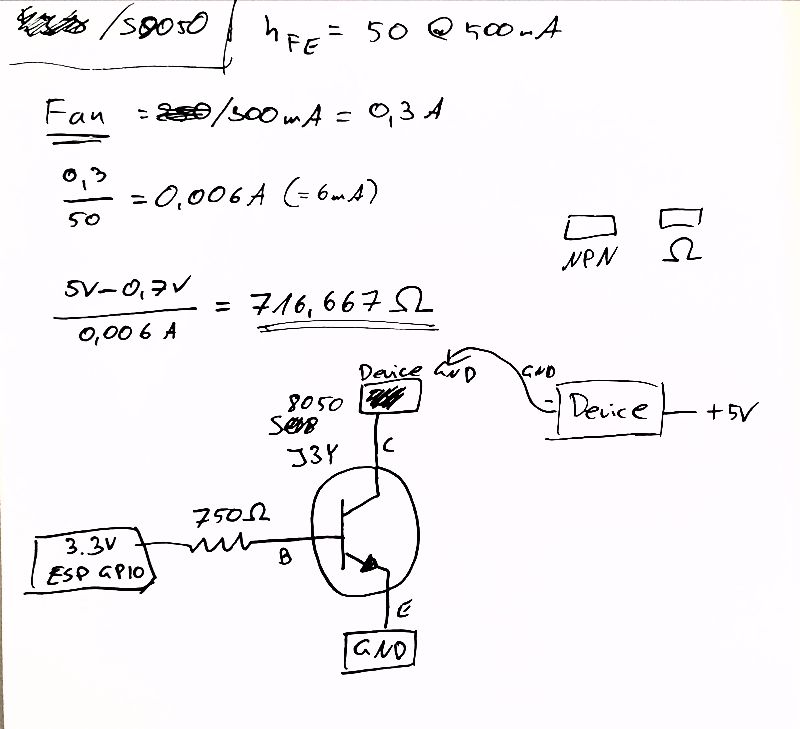 /S8050 hFE = 50 @ 500mA
Fan = /300mA = 0,3 A
0,3
50
= 0,006A (=6mA)
NPN Ω
5V-0,7V
0,006 A
= 716,667 Ω
Device GND GND
8050
Device +5V
J3Y
C
750Ω
3.3V
ESP GPIO
B
E
GND